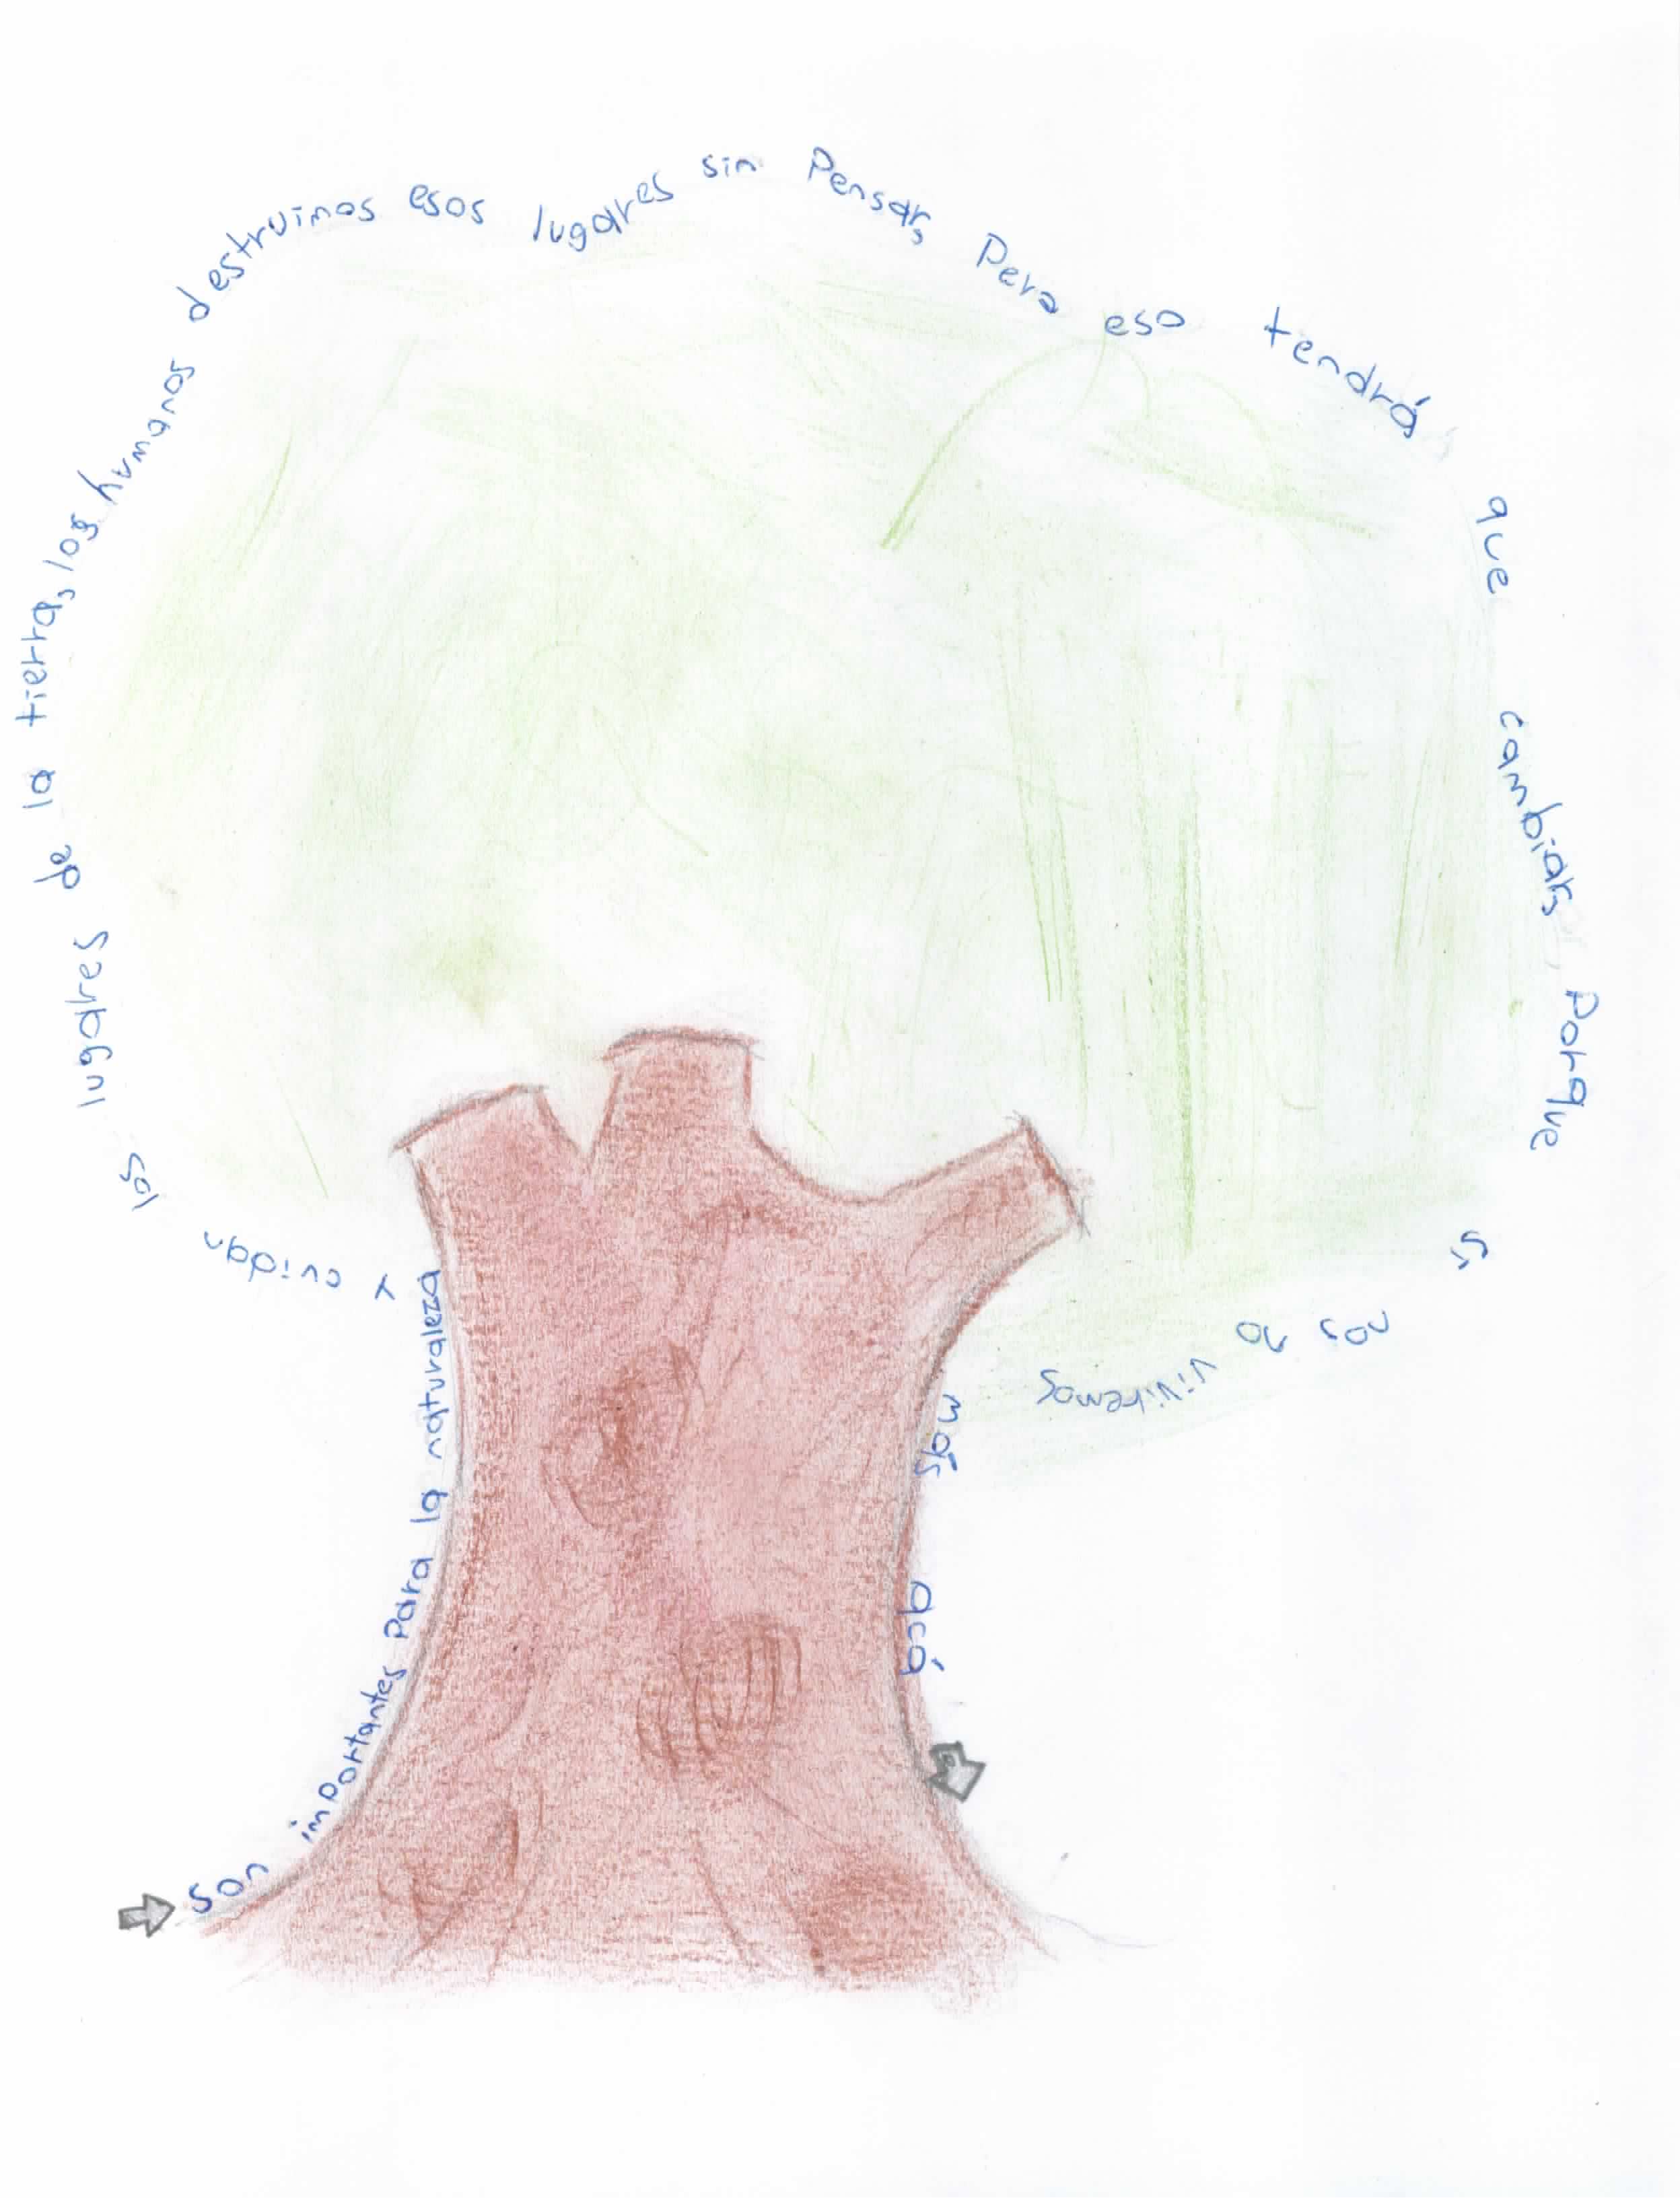 Son importantes Para la naturaleza y cuidan los lugares de la tierra, los humanos destruimos esos lugares sin Pensar, Pero eso tendrá que cambiar, Porque si nos no viviremos más acá